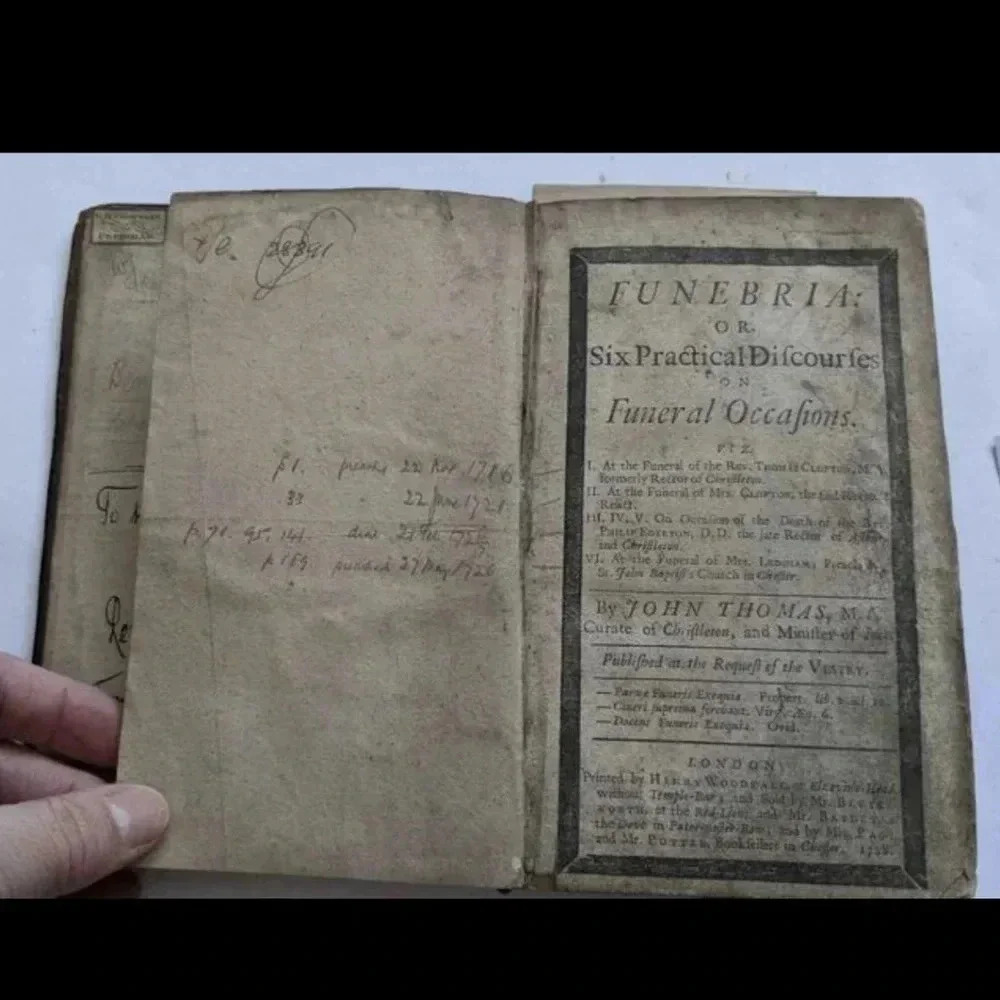 28891
p1. preached 22 Nov. 1716
33 " 22 1721
p. 71. 95. 141. died
p 169 preached 27 May 1726
To
FUNEBRIA:
OR
Six Practical Diſcourſes
ON
Funeral Occaſions.
VIZ.
I. At the Funeral of the Rev. THOMAS CLOPTON, M. A.
formerly Rector of Chriſtleton.
II. At the Funeral of Mrs. CLOPTON, the ſaid Rector's
Relict.
III. IV. V. On Occaſion of the Death of the Rev.
PHILIP EGERTON, D.D. the late Rector of
and Chriſtleton.
VI. At the Funeral of Mrs. Preach'd
St. John Baptiſt's Church in Cheſter.
By JOHN THOMAS, M. A.
Curate of Chriſtleton, and Miniſter of
Publiſhed at the Requeſt of the VESTRY.
— Parvæ Funeris Exequiæ. Propert. lib. 2.
— Cineri ſuprema ferebant. Virg. Æn. 6.
— Ducens Funeris Exequias. Ovid.
LONDON:
Printed by HENRY WOODFALL, at Elzevir's-Head
without Temple-Bar; and Sold by Mr. BETTES-
WORTH, at the Red-Lion, and Mr.
the Dove in Pater-noſter-Row; and by Mrs. PAGE
and Mr. POTTER, Bookſellers in Cheſter. 1728.